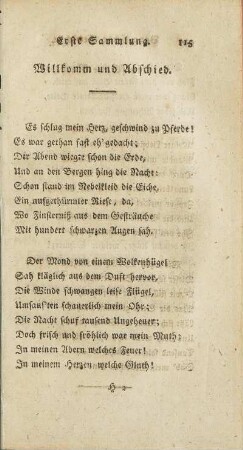 Erste Sammlung. 115
Willkomm und Abschied.
Es schlug mein Herz, geschwind zu Pferde!
Es war gethan fast eh' gedacht;
Der Abend wiegte schon die Erde,
Und an den Bergen hing die Nacht:
Schon stand im Nebelkleid die Eiche,
Ein aufgethürmter Riese, da,
Wo Finsterniß aus dem Gesträuche
Mit hundert schwarzen Augen sah.
Der Mond von einem Wolkenhügel
Sah kläglich aus dem Duft hervor,
Die Winde schwangen leise Flügel,
Umsaus'ten schauerlich mein Ohr;
Die Nacht schuf tausend Ungeheuer;
Doch frisch und fröhlich war mein Muth:
In meinen Adern welches Feuer!
In meinem Herzen welche Gluth!
H 2